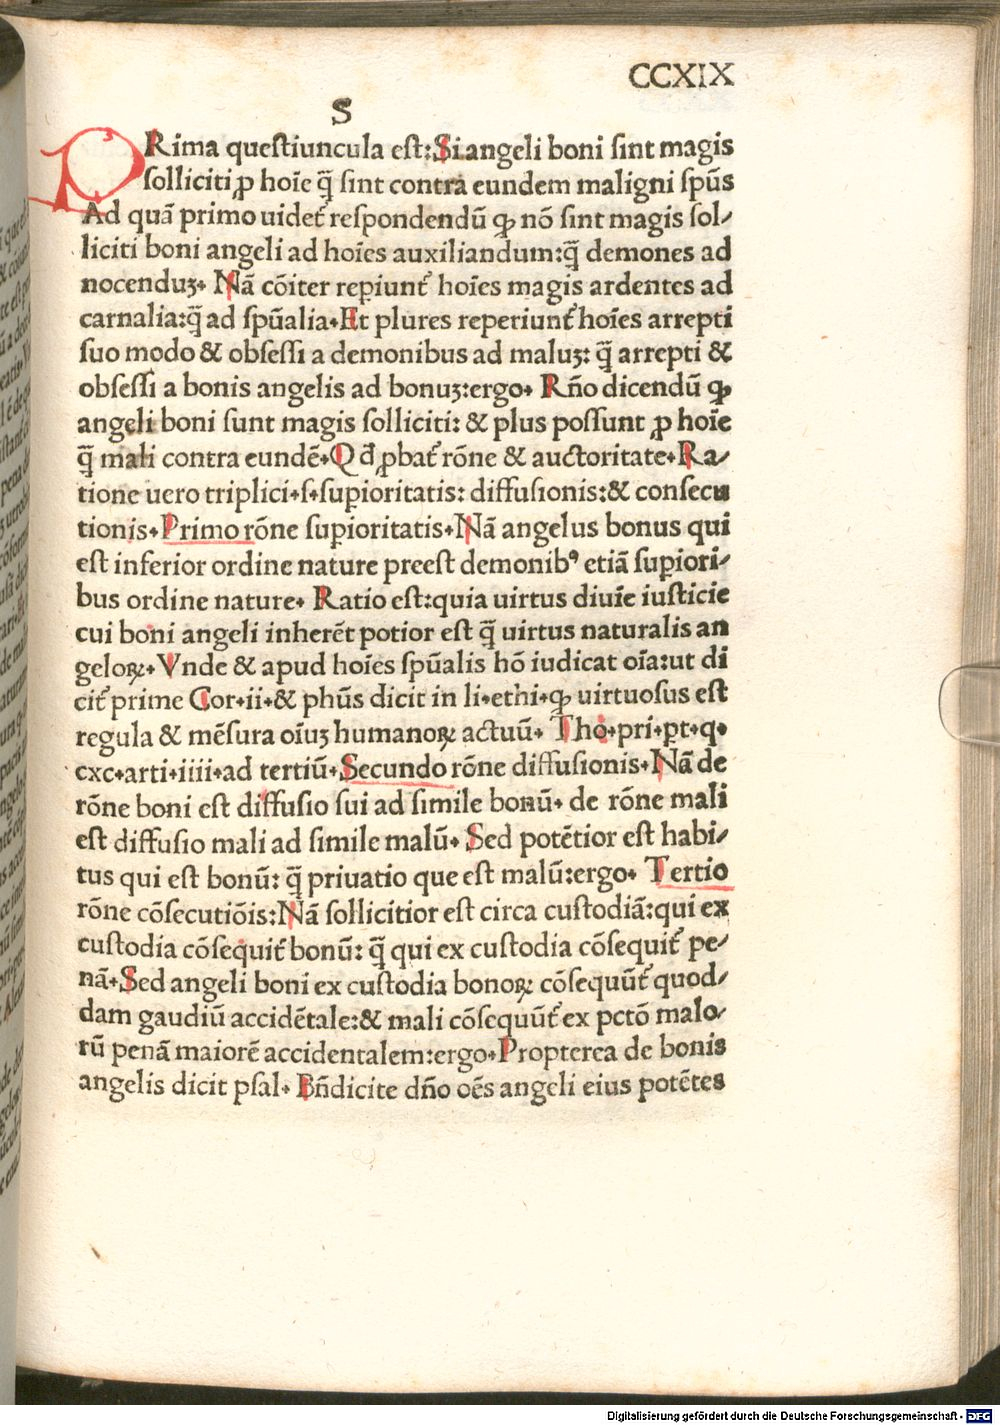 CCXIX
S
PRima questiuncula est: Si angeli boni sint magis
solliciti ꝓ hoīe q̄̃ sint contra eundem maligni spūs
Ad quā primo uidet᷑ respondendū ꝙ nō sint magis sol⸗
liciti boni angeli ad hoīes auxiliandum: q̄̃ demones ad
nocenduꝫ. Nā cōiter repiunt᷑ hoīes magis ardentes ad
carnalia: q̄̃ ad spūalia. Et plures reperiunt᷑ hoīes arrepti
suo modo & obsessi a demonibus ad maluꝫ: q̄̃ arrepti &
obsessi a bonis angelis ad bonuꝫ: ergo. Rn̄o dicendū ꝙ
angeli boni sunt magis solliciti: & plus possunt ꝓ hoīe
q̄̃ mali contra eundē. Q đ ꝓbat᷑ rōne & auctoritate. Ra⸗
tione uero triplici. s. suꝑioritatis: diffusionis: & consecu
tionis. Primo rōne suꝑioritatis. Nā angelus bonus qui
est inferior ordine nature preest demonibꝰ etiā suꝑiori⸗
bus ordine nature. Ratio est: quia uirtus diuīe iusticie
cui boni angeli inherēt potior est q̄̃ uirtus naturalis an
geloꝝ. Vnde & apud hoīes spūalis hō iudicat oīa: ut di
cit᷑ prime Cor. ii. & phūs dicit in li. ethi. ꝙ uirtuosus est
regula & mēsura oīuꝫ humanoꝝ actuū. Tho. pri. pt. q.
cxc. arti. iiii. ad tertiū. Secundo rōne diffusionis. Nā de
rōne boni est diffusio sui ad simile bonū. de rōne mali
est diffusio mali ad simile malū. Sed potētior est habi⸗
tus qui est bonū: q̄̃ priuatio que est malū: ergo. Tertio
rōne cōsecutiōis: Nā sollicitior est circa custodiā: qui ex
custodia cōsequit᷑ bonū: q̄̃ qui ex custodia cōsequit᷑ pe⸗
nā. Sed angeli boni ex custodia bonoꝝ cōsequūt᷑ quod⸗
dam gaudiū accidētale: & mali cōsequūt᷑ ex pctō malo⸗
rū penā maiorē accidentalem: ergo. Propterea de bonis
angelis dicit psal. Bn̄dicite dn̄o oēs angeli eius potētes
Digitalisierung gefördert durch die Deutsche Forschungsgemeinschaft - DFG